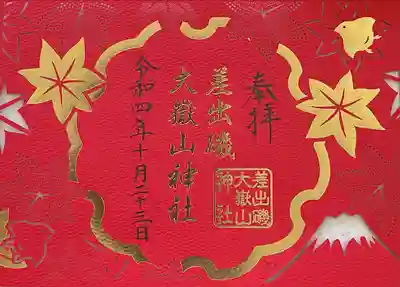 奉拝
差出磯
大嶽山神社
令和四年十月二十三日
差出磯
大嶽山
神社